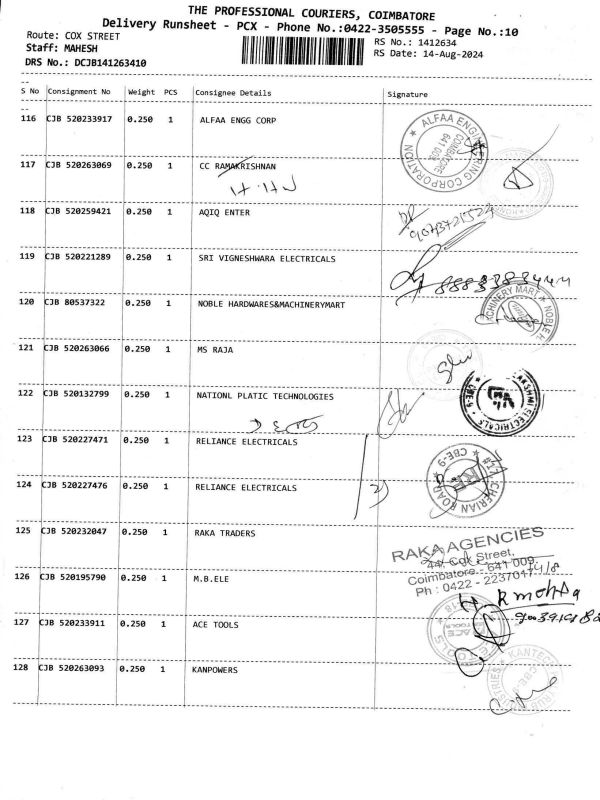 THE PROFESSIONAL COURIERS, COIMBATORE
Delivery Runsheet - PCX - Phone No.:0422-3505555 - Page No.:10
Route: COX STREET
RS No.: 1412634
Staff: MAHESH
RS Date: 14-Aug-2024
DRS No.: DCJB141263410
S No Consignment No Weight PCS Consignee Details Signature
116 CJB 520233917 0.250 1 ALFAA ENGG CORP
ALFAA ENGINEERING CORPORATION COIMBATORE
117 CJB 520263069 0.250 1 CC RAMAKRISHNAN
118 CJB 520259421 0.250 1 AQIQ ENTER
119 CJB 520221289 0.250 1 SRI VIGNESHWARA ELECTRICALS
120 CJB 80537322 0.250 1 NOBLE HARDWARES&MACHINERYMART
121 CJB 520263066 0.250 1 MS RAJA
122 CJB 520132799 0.250 1 NATIONL PLATIC TECHNOLOGIES
123 CJB 520227471 0.250 1 RELIANCE ELECTRICALS
CBE-9
124 CJB 520227476 0.250 1 RELIANCE ELECTRICALS
2)
125 CJB 520232047 0.250 1 RAKA TRADERS
RAKA AGENCIES
44, Cox Street,
Coimbatore - 641 009.
126 CJB 520195790 0.250 1 M.B.ELE
Ph : 0422 - 2237017
127 CJB 520233911 0.250 1 ACE TOOLS
128 CJB 520263093 0.250 1 KANPOWERS